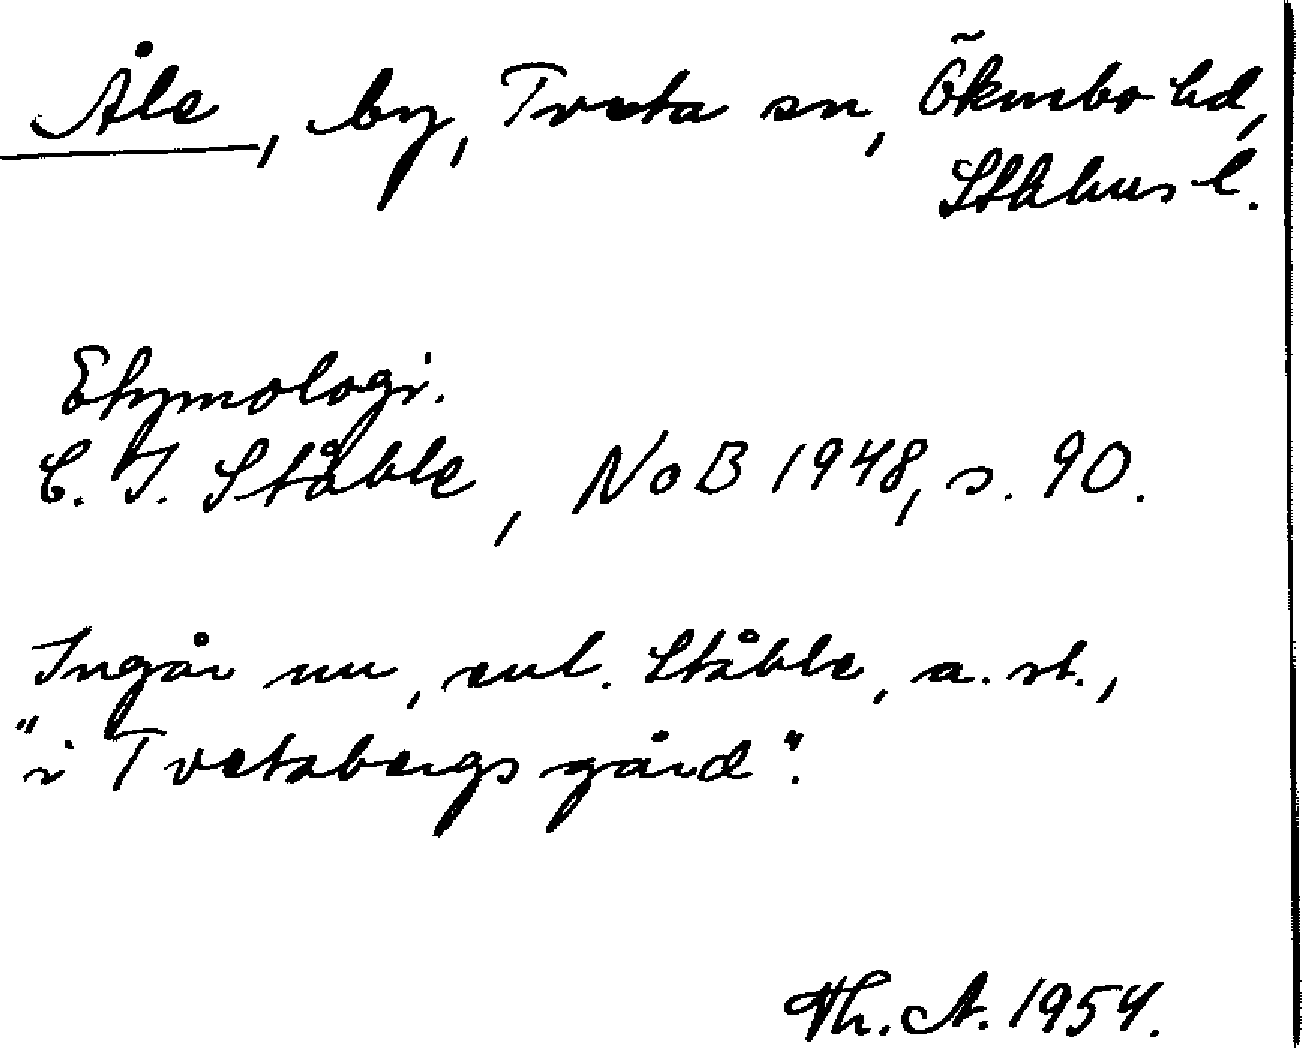 Åle, by, Tveta sn, Öknebo hd,
Sthlms l.
Etymologi.
C. I. Ståhle, NoB 1948, s. 90.
Ingår nu, enl. Ståhle, a. st.,
"i Tvetabergs gård".
Th. A. 1954.